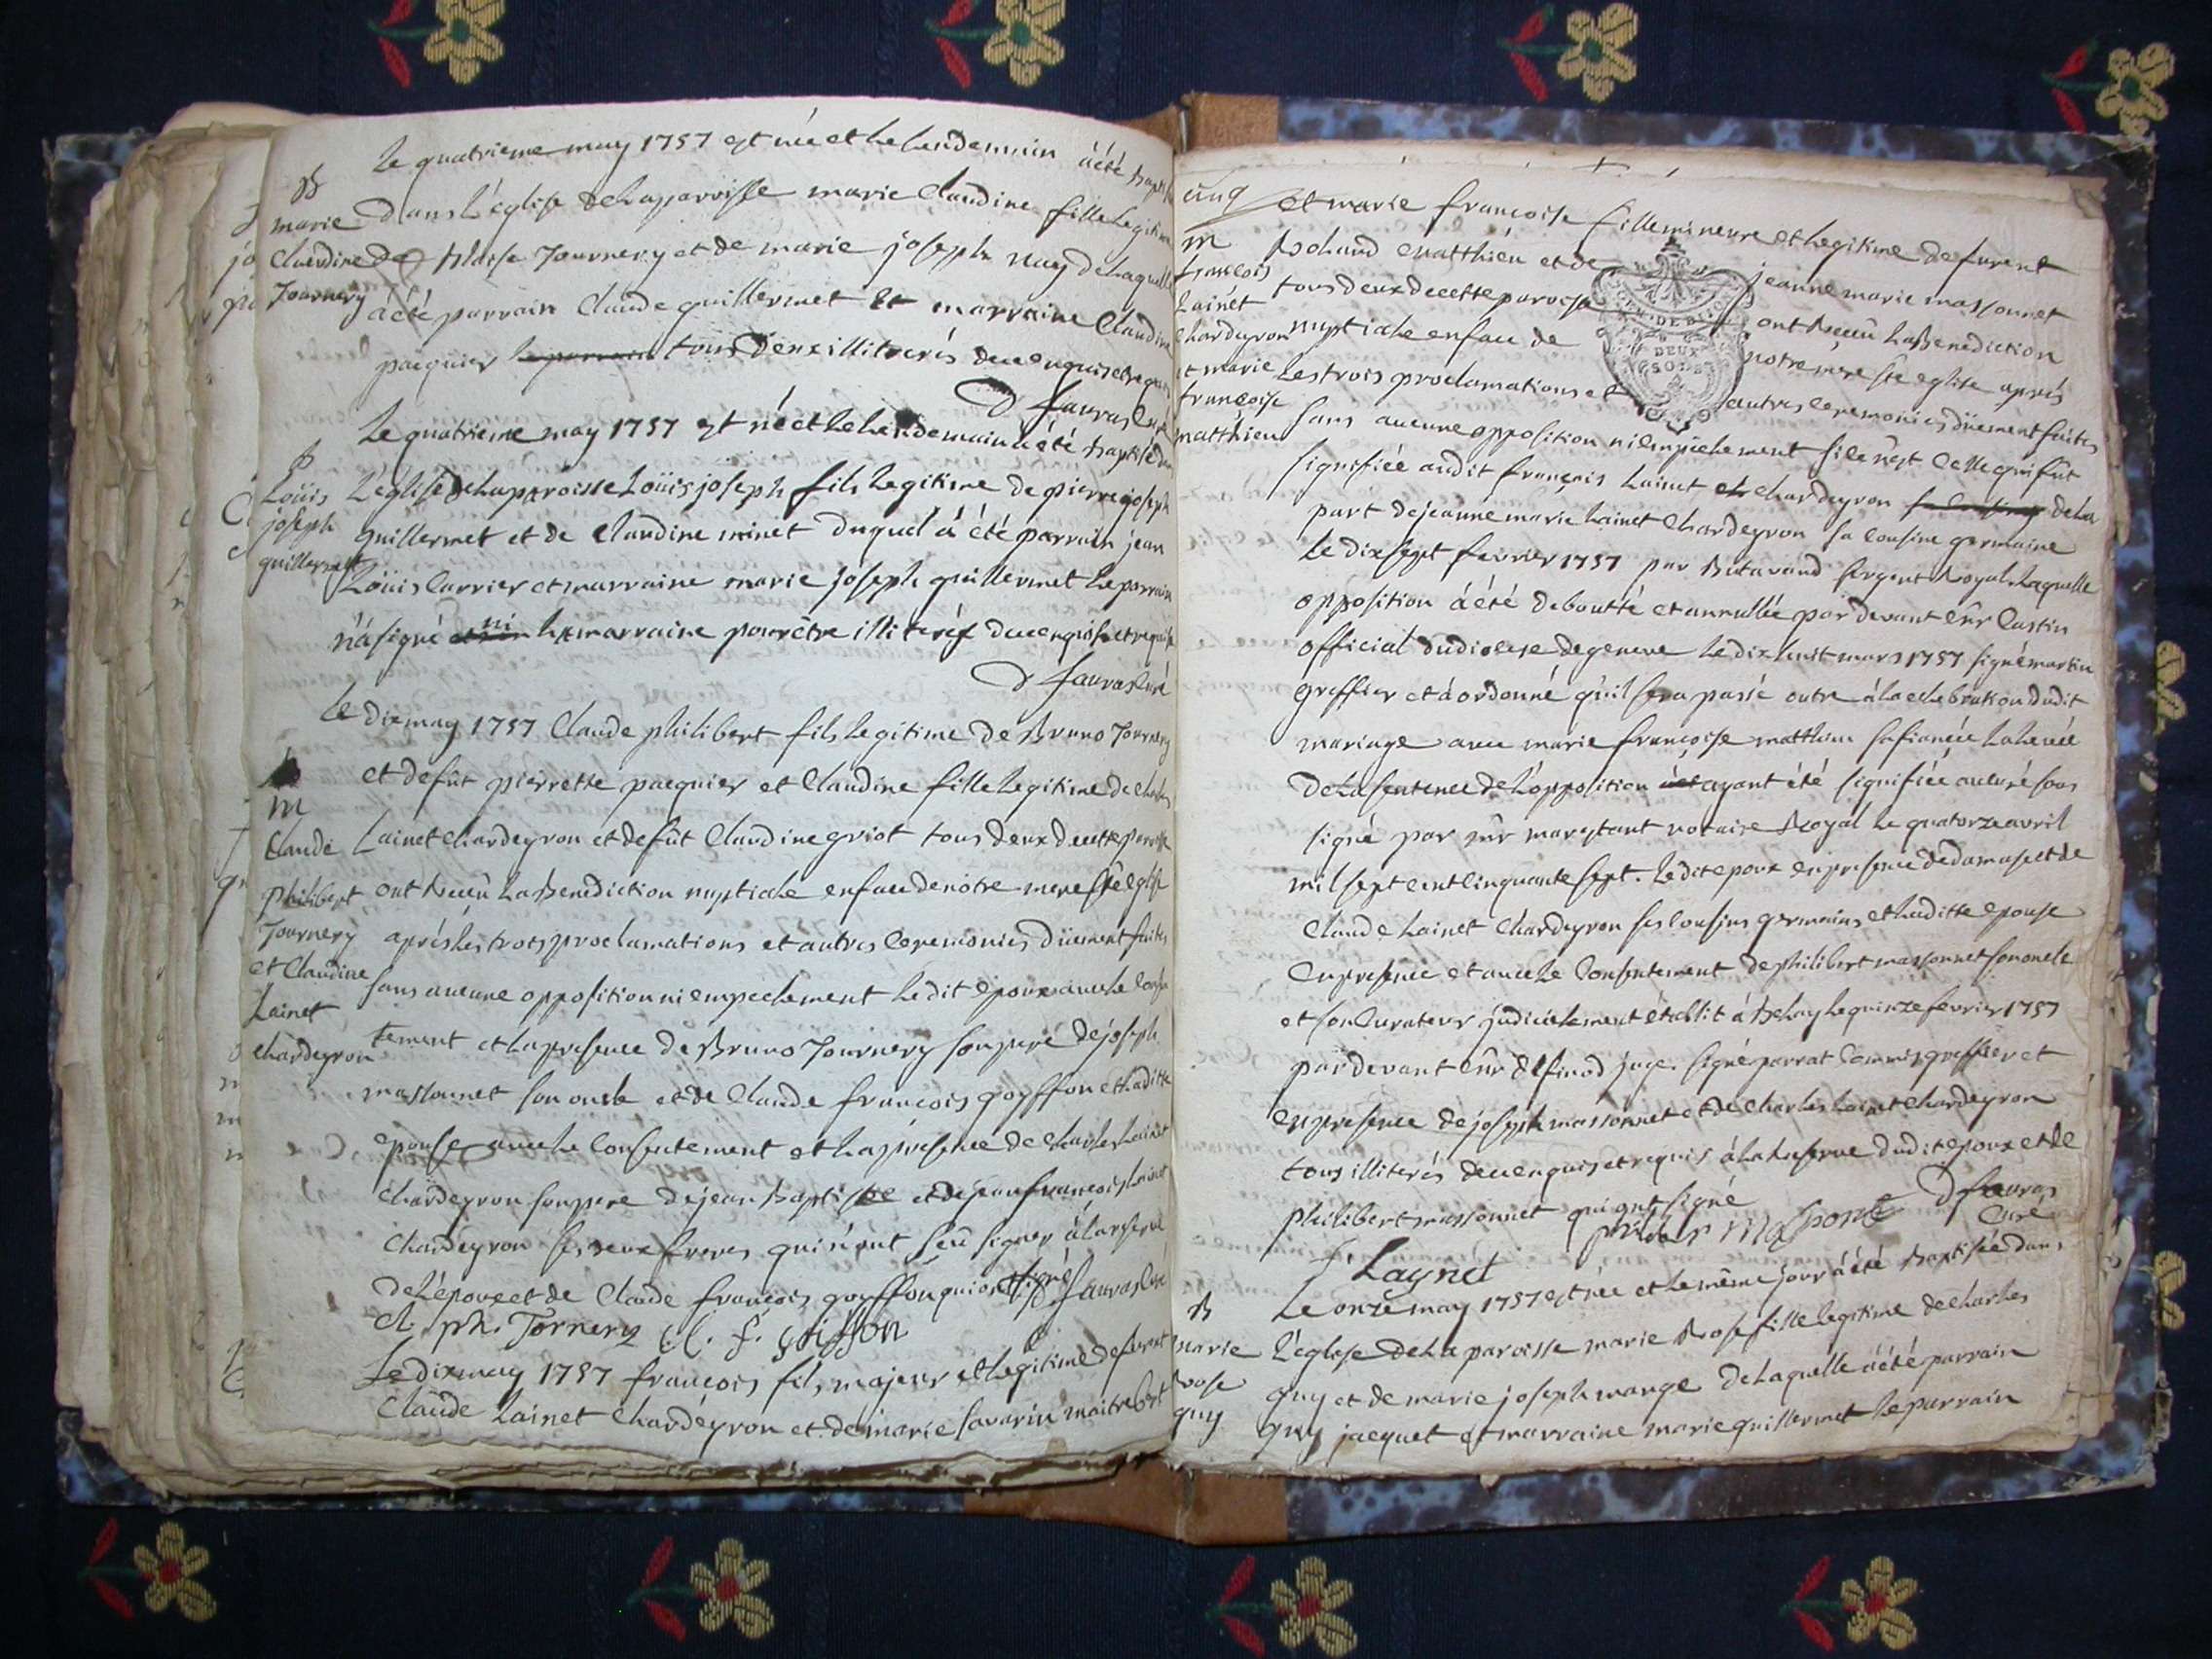 Le quatrieme may 1757 est née et le lendemain àété bapti
B
marie dans l'église de la paroisse marie Claudine fille legitime
Claudine de Blaise Journery et de marie joseph nuy de laquelle
Journery àété parrain Claude guillermet et marraine Claudine
pacquier tous deux illiterés deuenquis et requis
D favras Curé
Le quatrieme may 1757 est né et le lendemain àété baptisé dans
B
Loüis L'église de la paroisse Loüis joseph fils legitime de pierre joseph
joseph guillermet et de Claudine minet duquel à été parrain jean
guillermet Loüis Carrier et marraine marie joseph guillermet le parrain
n'a signé ni la marraine pour être illiterés deuenquise et requise
D favras Curé
Le dix may 1757 Claude philibert fils legitime de Bruno Journery
et defût pierrette pacquier et Claudine fille legitime de Charles
m
Claude Lainet Chardeyron et defût Claudine griot tous deux decette paroisse
philibert ont Receu la Benediction nuptiale enface denotre mere Ste eglise
Journery aprés les trois proclamations et autres Ceremonies düement faites
et Claudine sans aucune opposition ni empechement le dit epoux avec le Consen
Lainet
Chardeyron tement et la presence de Bruno Journery son pere de joseph
massonnet son oncle et de Claude francois goyffon et laditte
epouse avec le Consentement et la presence de Charles Lainet
Chardeyron son pere de jean Baptiste et de jean francois Lainet
Chardeyron ses deux freres qui n'ont sçû signer à la reserve
de L'epoux et de Claude françois goyffon qui ont signé D favras Curé
Cl. ph. Tornery C. f. goiffon
Le dix may 1757 francois fils majeur et legitime de furent
Claude Lainet Chardeyron et de marie savarin maitrebert
cinq et marie francoise fille mineure et legitime de furent
m
francois Roland matthieu et de jeanne marie massonnet
Lainet tous deux decette paroisse ont Receu la Benediction
Chardeyron nuptiale enface de notre mere Ste eglise aprés
et marie Les trois proclamations et autres Ceremonies düement faites
francoise
matthieu sans aucune opposition ni empechement si ce n'est Celle qui fût
DEUX
SOLS
signifiée audit françois Lainet Chardeyron de la
part de jeanne marie Lainet Chardeyron sa Cousine germaine
Le dix sept fevrier 1757 par Butavand sergent Royal Laquelle
opposition àété deboutté et annullée par devant Sûr Castin
official du diocese de geneve le dix huit mars 1757 signé martin
greffier et à ordonné qu'il sera passé outre à la celebration dudit
mariage avec marie francoise matthieu sa fiancée la levée
de la sentence de L'opposition ayant été signifiée au Curé sous
signé par Sûr marestant notaire Royal le quatorze avril
mil sept cent Cinquante sept. Le dit epoux en presence de damas et de
Claude Lainet Chardeyron ses Cousins germains et laditte epouse
En presence et avec le Consentement de philibert massonnet son oncle
et son Curateur judiciellement établit à Belay le quinze fevrier 1757
par devant Sûr Delfinod juge. signé parrat Commis greffier et
en presence de joseph massonnet et de Charles Lainet Chardeyron
tous illiterés deuenquis et requis à la reserve du dit epoux et de
philibert massonnet qui ont signé D favras
philiber Massonet Curé
f Laynét
B Le onze may 1757 est née et le même jour àété Baptisée dans
marie L'église de la paroisse marie Rose fille legitime de Charles
rose guy et de marie joseph mange de laquelle àété parrain
guy guy jacquet et marraine marie guillermet le parrain